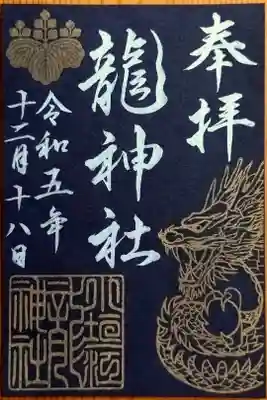 奉拝
龍神社
令和五年
十二月十八日